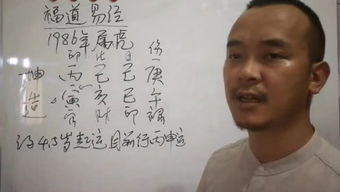 福道易经
1986年属虎
印 比 伤
坤 丙 己 己 庚
造 寅 亥 巳 午
官 财 印 禄
约4.5岁起运 目前行丙申运